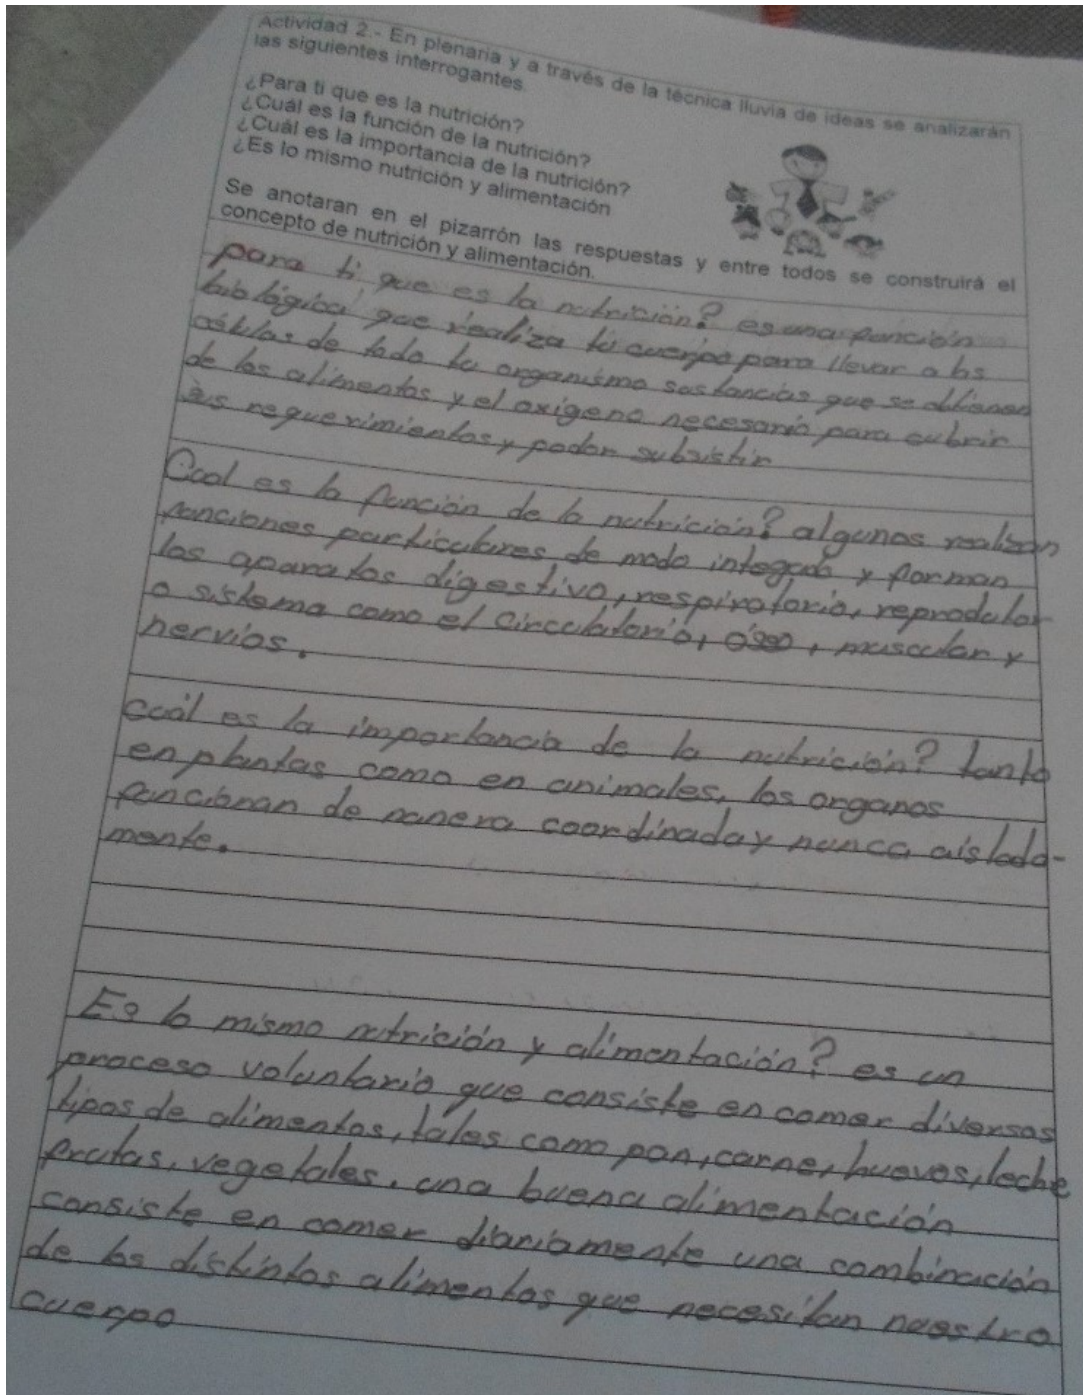 Actividad 2.- En plenaria y a través de la técnica lluvia de ideas se analizarán
las siguientes interrogantes.
¿Para ti que es la nutrición?
¿Cuál es la función de la nutrición?
¿Cuál es la importancia de la nutrición?
¿Es lo mismo nutrición y alimentación
Se anotaran en el pizarrón las respuestas y entre todos se construirá el
concepto de nutrición y alimentación.
para ti que es la nutrición? es una función
biológica que realiza tu cuerpo para llevar a las
células de todo tu organismo sustancias que se obtienen
de los alimentos y el oxigeno necesario para cubrir
sus requerimientos y poder subsistir
Cual es la función de la nutrición? algunos realizan
funciones particulares de modo integrado y forman
los aparatos digestivo, respiratorio, reproductor
o sistema como el circulatorio, óseo, muscular y
nervios.
cuál es la importancia de la nutrición? tanto
en plantas como en animales, los organos
funcionan de manera coordinada y nunca aislada-
mente.
Es lo mismo nutrición y alimentación? es un
proceso voluntario que consiste en comer diversos
tipos de alimentos, tales como pan, carne, huevos, leche
frutas, vegetales. una buena alimentación
consiste en comer diariamente una combinación
de los distintos alimentos que necesitan nuestro
cuerpo